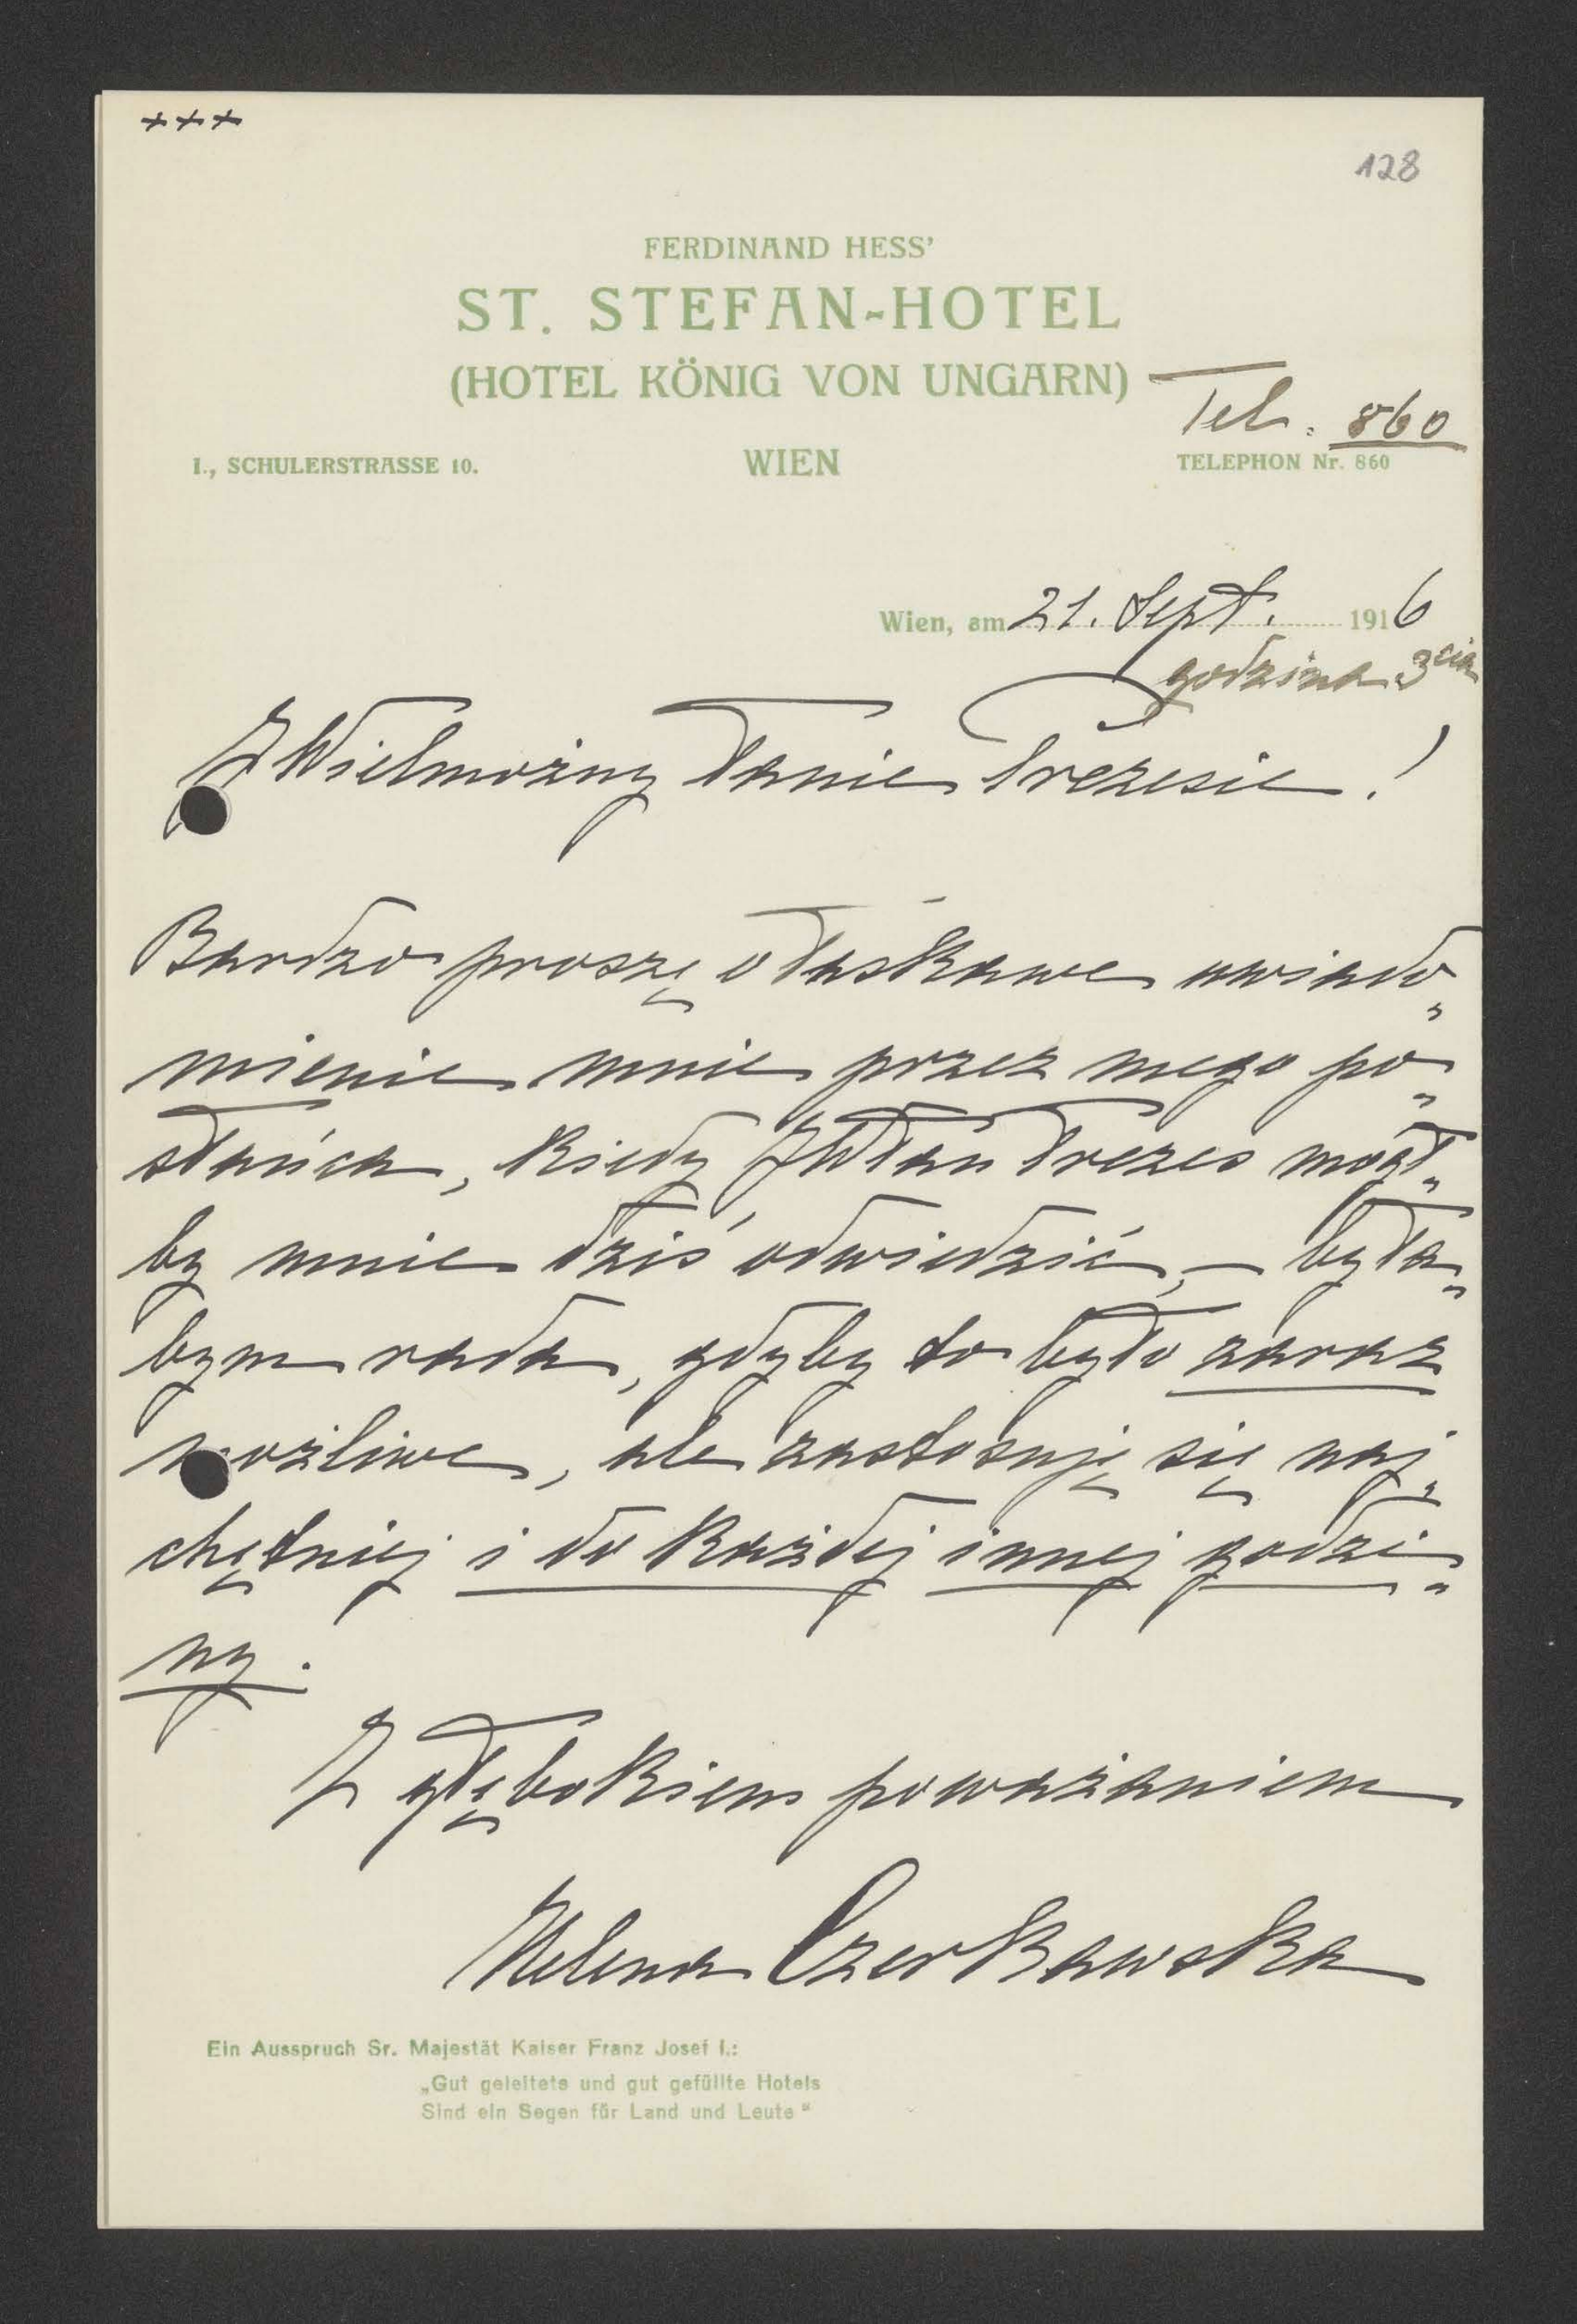 +++
128
FERDINAND HESS'
ST. STEFAN-HOTEL
(HOTEL KÖNIG VON UNGARN)
Tel. 860
I., SCHULERSTRASSE 10. WIEN TELEPHON Nr. 860
Wien, am 21. Sept. 1916
godzina 3cia
JWielmożny Panie Prezesie!
Bardzo proszę o łaskawe uwiado„
mienie mnie przez mego po„
słańca, kiedy JWPan Prezes mógł„
by mnie dziś odwiedzić, – była„
bym rada, gdyby to było zaraz
możliwe, ale zastosuję się naj„
chętniej i do każdej innej godzi„
ny.
Z głębokiem poważaniem
Helena Czerkawska
Ein Ausspruch Sr. Majestät Kaiser Franz Josef I.:
„Gut geleitete und gut gefüllte Hotels
Sind ein Segen für Land und Leute“